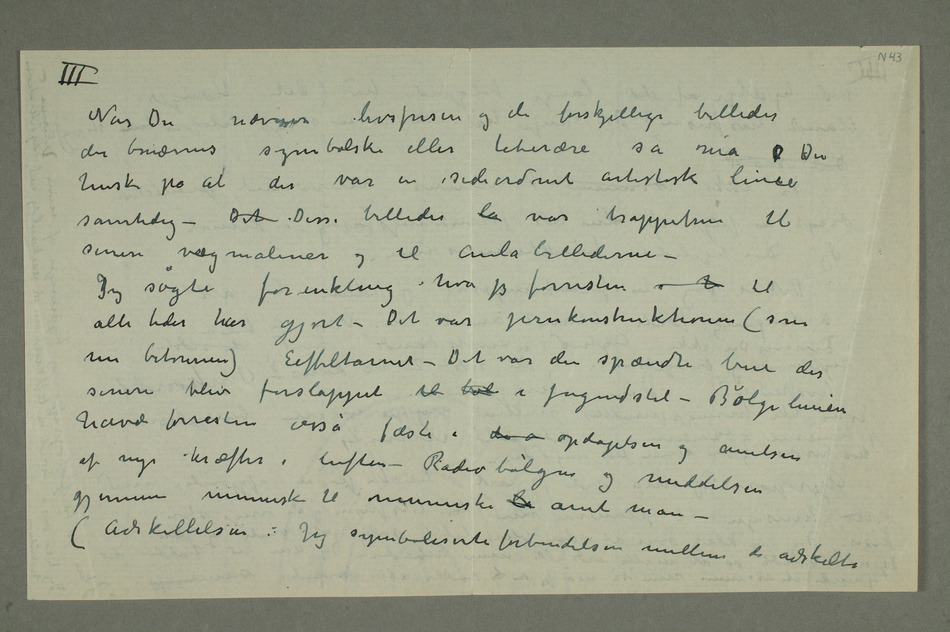 III
N 43
Når Du nævner livsfrisen og de forskjellige billeder
der benævnes symbolske eller literære så må Du
huske på at der var en sideordnet artistisk linie
samtidig – Det Disse billeder la var trappetrin til
senere vægmalerier og til Aulabillederne –
Jeg søgte forenkling – hva jeg forresten til
alle tider har gjort – Det var jernkonstruktionens (som
nu betonens) Eiffeltårnet – Det var den spændte bue der
senere blev forslappet til i Jugendstil – Bølgelinien
havde forresten også fæste i opdagelsen og anelsen
af nye kræfter i luften – Radiobølgene og meddelsen
gjennem menneske til menneske anet man –
( Adskillelsen: Jeg symboliserte forbindelsen mellem de adskilte